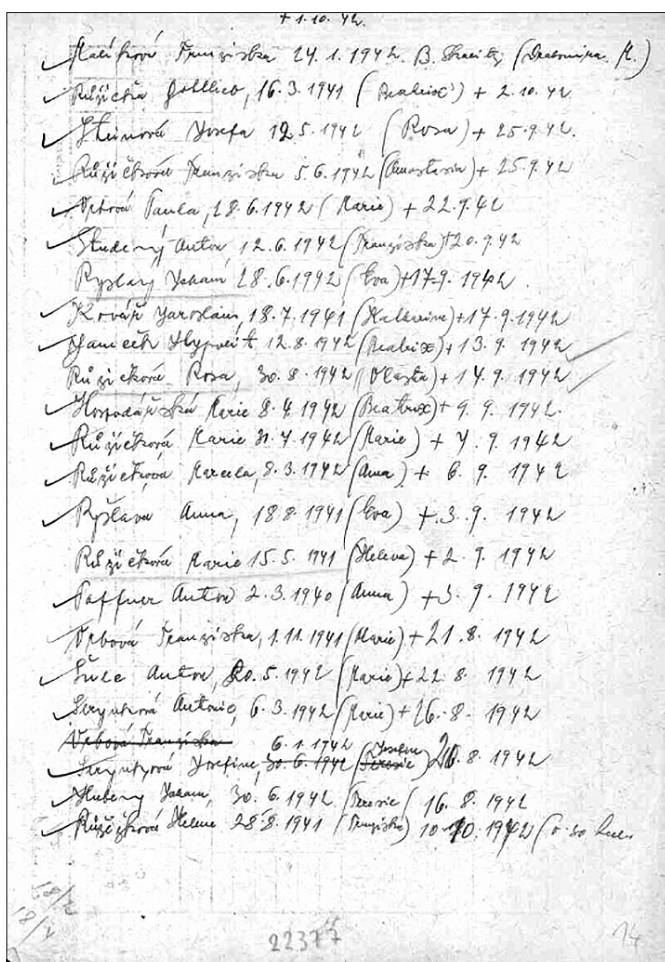 + 1.10.42.
Franziska 24.1.1942. B. (
Růžička 16.3.1941 (Beatrix) + 2.10.42
Steinová Josefa 12.5.1942 (Rosa) + 25.9.42.
Růžičková Franziska 5.6.1942 (Anastasia) + 25.9.42
Vrbová Paula, 28.6.1942 (Marie) + 22.9.42
Studený Anton 12.6.1942 (Franziska) + 20.9.42
Ryslavý Johann 28.6.1942 (Eva) + 17.9. 1942.
Kovář Jaroslaus, 18.7.1941 (Katherine) + 17.9.1942
Janeček 12.8.1942 (Beatrix) + 13.9.1942
Růžičková Rosa, 30.8.1942 (Vlasta) + 14.9.1942
Hospodářská Marie 8.4.1942 (Beatrix) + 9.9.1942.
Růžičková Marie 31.7.1942 (Marie) + 7.9.1942
Růžičková Marcela, 8.3.1942 (Anna) + 6.9.1942
Ryšlava Anna, 18.8.1941 (Eva) + 3.9. 1942
Růžičková Marie 15.5.1941 (Helena) + 2.9.1942
Paffner Anton 2.3.1940 (Anna) + 3.9.1942
Vrbová Franziska, 1.11.1941 (Marie) + 21.8.1942
Anton, 20.5.1942 (Marie) + 22.8.1942
6.3.1942 (Marie) + 26.8.1942
Vrbová Franziska 6.1.1942
Josefine, 30.6.1942 8.1942
Hubený Johann, 30.6.1942 (Teresie) 16.8.1942
Růžičková Helene 28.8.1941 (Franziska) 10.10.1942 (
18/2
18/2
22377
14